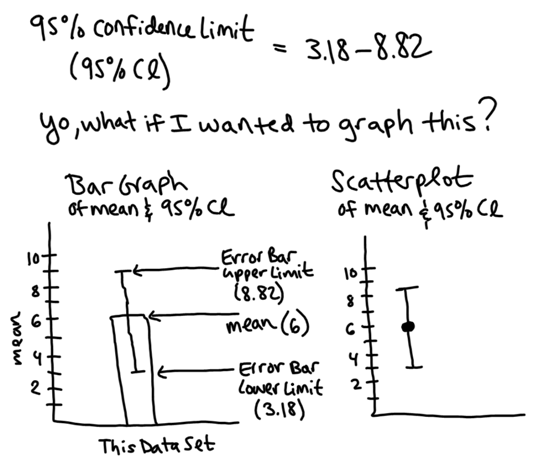 95% Confidence Limit
(95% CL) = 3.18-8.82
yo, what if I wanted to graph this?
Bar Graph
of mean & 95% CL
10
8
6
4
2
mean
This Data Set
Error Bar
upper Limit
(8.82)
mean (6)
Error Bar
Lower Limit
(3.18)
Scatterplot
of mean & 95% CL
10
8
6
4
2